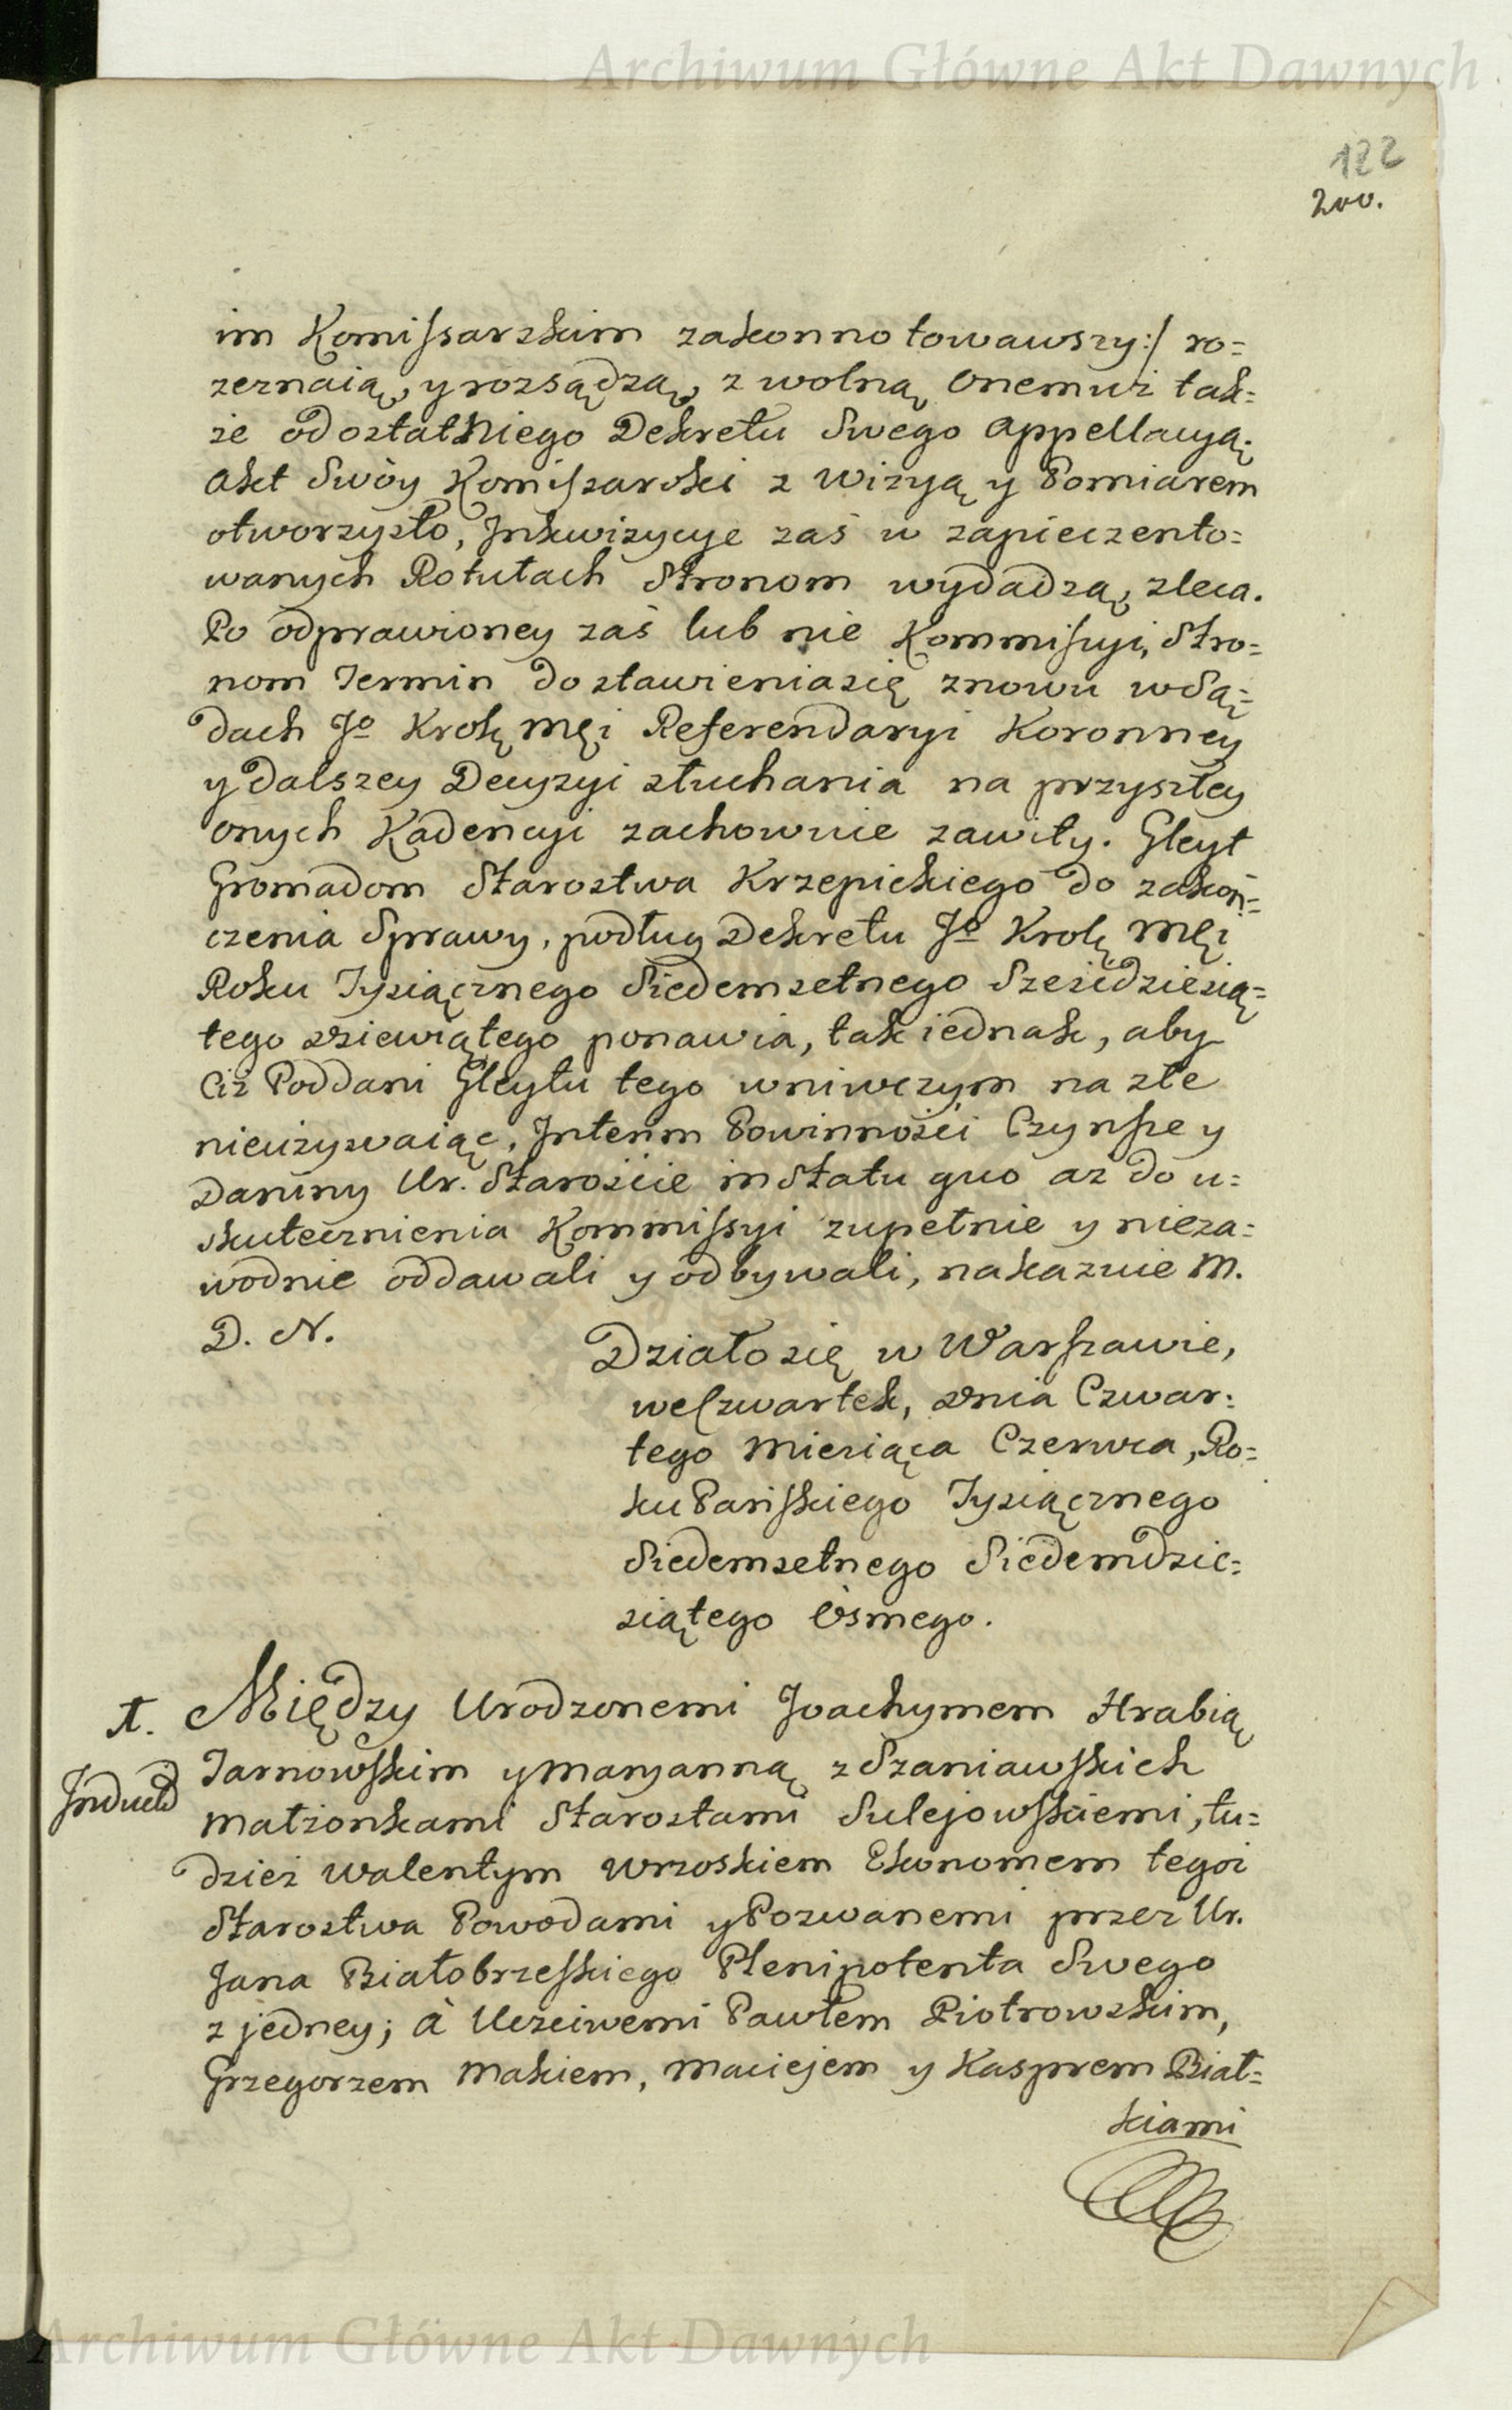 Archiwum Główne Akt Dawnych
122
200.
im Komissarskim zakonnotowawszy:/ ro=
zeznaią, y rozsądzą, z wolną Onemuż tak=
że od ostatniego Dekretu Swego Appellacyą.
Akt Swóy Komissarski z Wizyą y Pomiarem
otworzysto, Inkwizycye zaś w zapieczento=
wanych Rotułach Stronom wydadzą, zleca.
Po odprawioney zaś lub nie Kommissyi, Stro=
nom Termin do stawienia się znowu w Są=
dach Jo Krolę Męi Referendaryi Koronney
y dalszey Decyzyi słuchania na przyszłey
onych Kadencyi zachownie zawiły. Gleyt
Gromadom Starostwa Krzepickiego do zakoń=
czenia Sprawy, podług Dekretu Jo Krolę Męi
Roku Tysiącznego Siedemsetnego Sześćdziesią=
tego dziewiątego ponawia, tak iednak, aby
Ciż Poddani Gleytu tego w niwczym na złe
nieużywaiąc, Interim Powinności Czynsze y
Daniny Ur. Starościе in Statu quo aż do u=
skutecznienia Kommissyi zupełnie y nieza=
wodnie oddawali y odbywali, nakazuie M.
D. N.
Działo się w Warszawie,
we Czwartek, dnia Czwar=
tego Miesiąca Czerwca, Ro=
ku Pańskiego Tysiącznego
Siedemsetnego Siedemdzie=
siątego Osmego.
t. Między Urodzonemi Joachymem Hrabią
Tarnowskim y Maryanną z Szaniawskich
Małżonkami Starostami Sulejowskiemi, tu=
dzież Walentym Wrzoskiem Ekonomem tegoż
Starostwa Powodami y Pozwanemi przez Ur.
Jana Białobrzeskiego Plenipotenta Swego
z jedney; à Uczciwemi Pawłem Piotrowskim,
Grzegorzem Makiem, Maciejem y Kasprem Biał=
kiami
Archiwum Główne Akt Dawnych